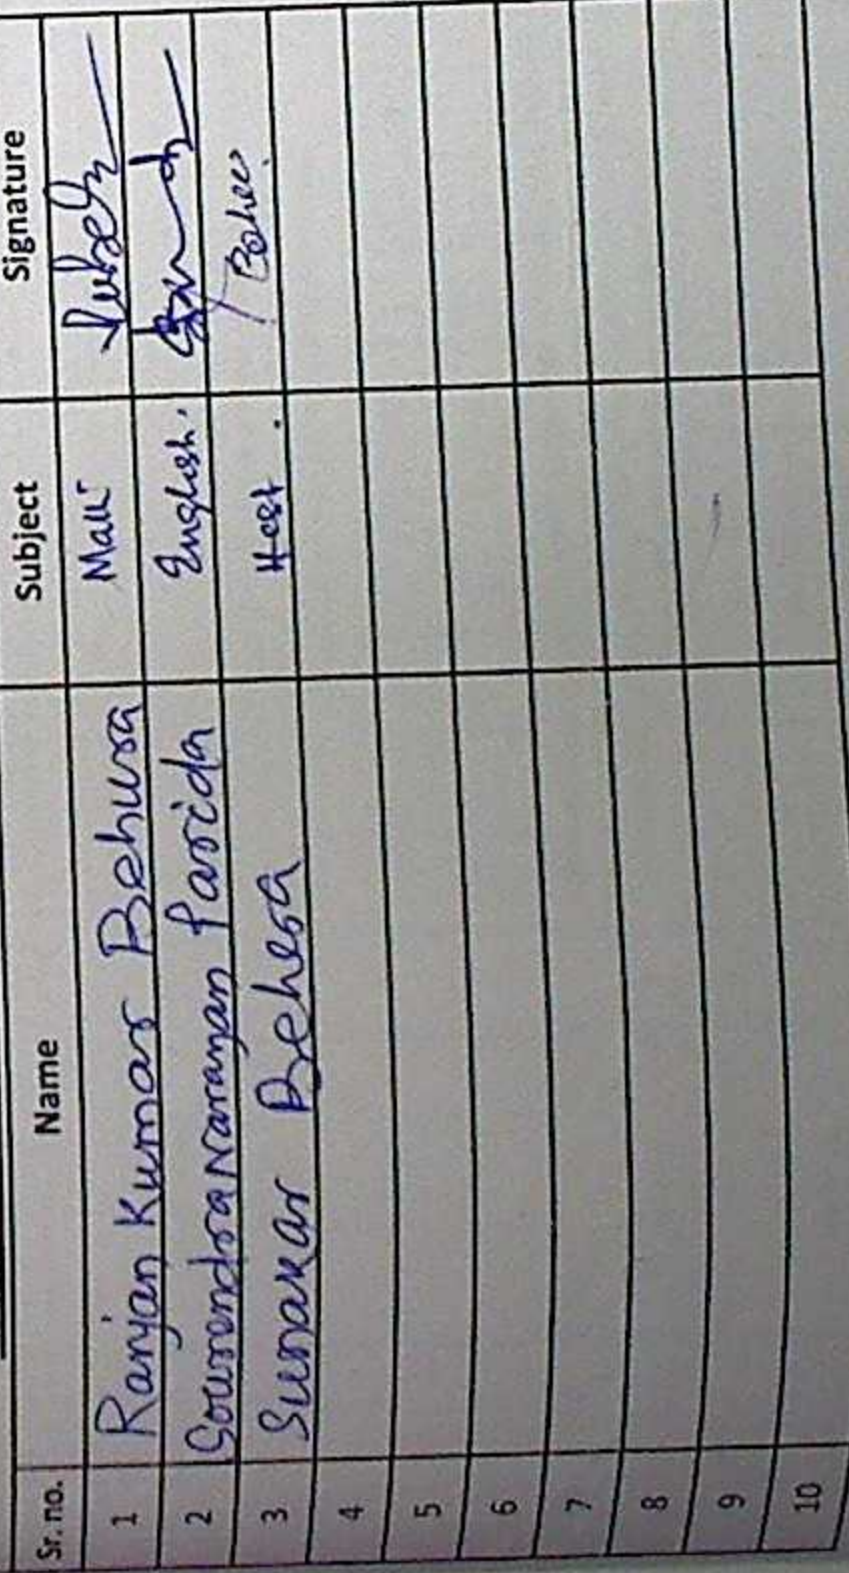 Sr. no. Name Subject Signature
1 Ranjan Kumar Behura Math
2 Sourendra Narayan Parida English.
3 Sunakar Behera Hist. Behera
4
5
6
7
8
9
10